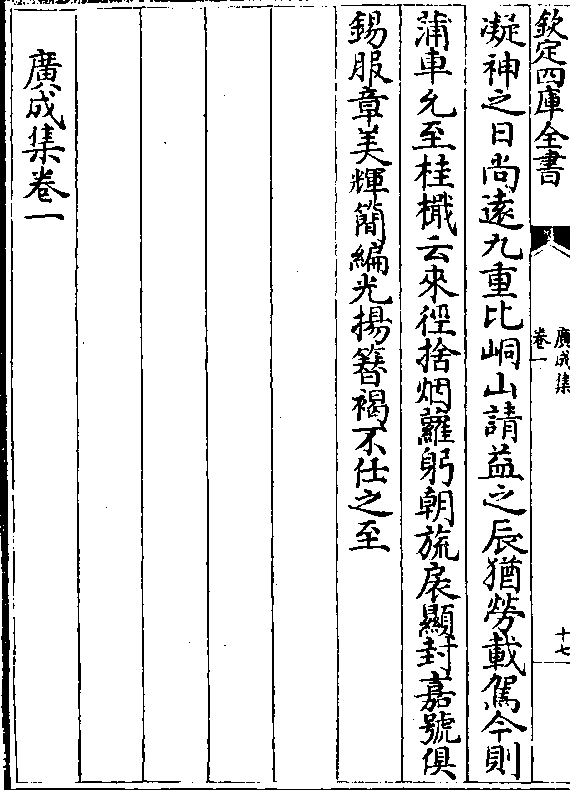 欽定四庫全書
廣成集
卷一
十七
凝神之日尚遠九重比峒山請益之辰猶勞載駕今則
蒲車允至桂檝云來徑捨烟蘿躬朝旒扆顯封嘉號俱
錫服章美輝簡編光揚簪褐不任之至
廣成集卷一